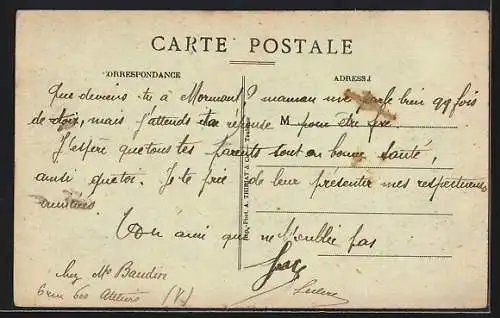 CARTE POSTALE
CORRESPONDANCE
ADRESSE
Que deviens-tu à Mormant ? maman me parle bien qq fois
de toi, mais j'attends ta réponse M pour être
J'espère que tous tes parents sont en bonne santé,
ainsi que toi. Je te prie de leur présenter mes respectueuses
amitiés.
Ton ami qui ne t'oublie pas
Leclerc
chez Mr Baudin
6 rue des Ateliers
Imp. Phot. A. THIRIAT & Cie